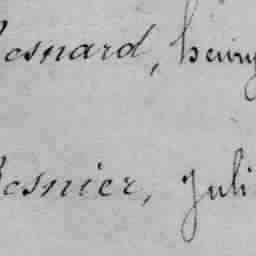 esnard, henry
esnier, Juli